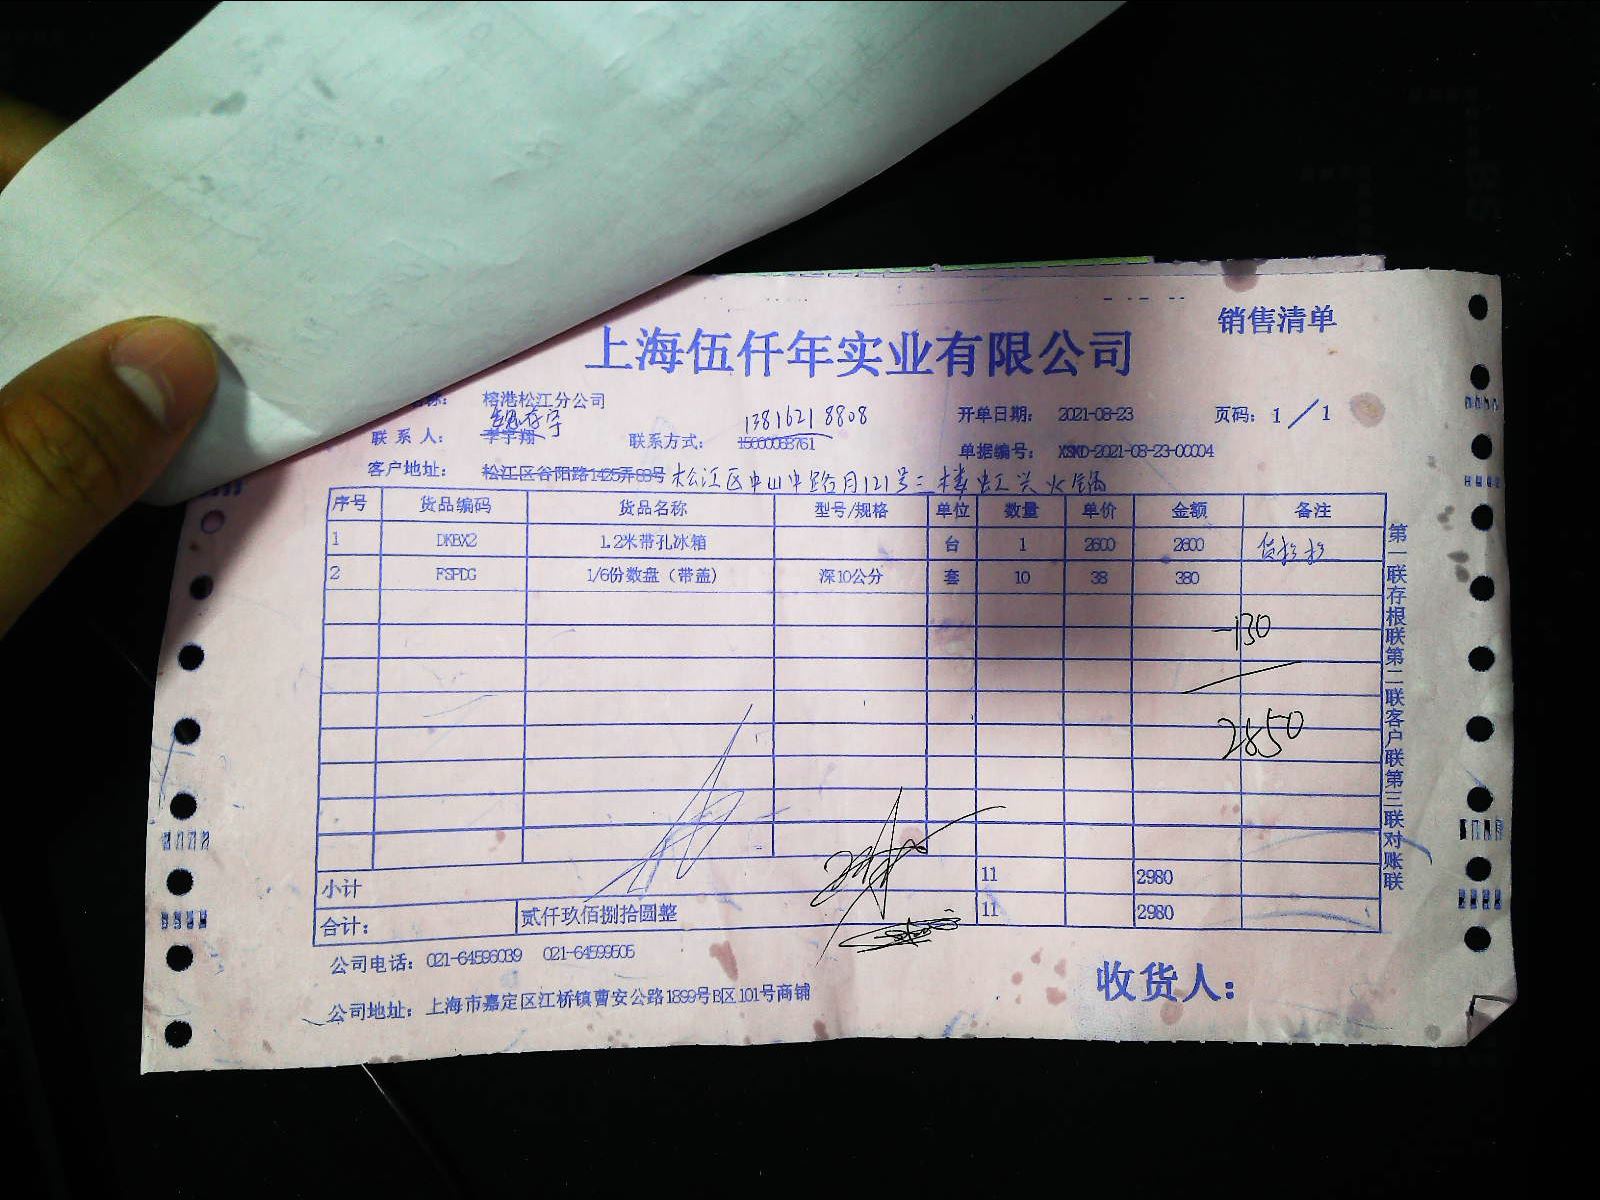 销售清单
上海伍仟年实业有限公司
称： 榕港松江分公司
13816218808 开单日期： 2021-08-23 页码： 1 / 1
联系人： 李宇翔 联系方式： 单据编号： XSXD-2021-08-23-00004
客户地址： 松江区谷阳路1425弄88号 松江区中山中路 121号三楼虹兴火锅
序号 货品编码 货品名称 型号/规格 单位 数量 单价 金额 备注
1 DKBX2 1.2米带孔冰箱 台 1 2600 2600
2 FSPDG 1/6份数盘（带盖） 深10公分 套 10 38 380
-130
2850
小计 11 2980
合计： 贰仟玖佰捌拾圆整 11 2980
公司电话： 021-64596039 021-64599505
公司地址： 上海市嘉定区江桥镇曹安公路1899号B区101号商铺
收货人：
第一联存根联第二联客户联第三联对账联